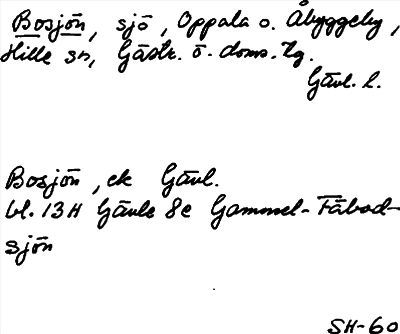 Bosjön, sjö, Oppala o. Åbyggeby,
Hille sn, Gästr. ö. doms. tg.
Gävl. l.
Bosjön, ek Gävl.
bl. 13 H Gävle 8c Gammel-Fäbod-
sjön
SH-60